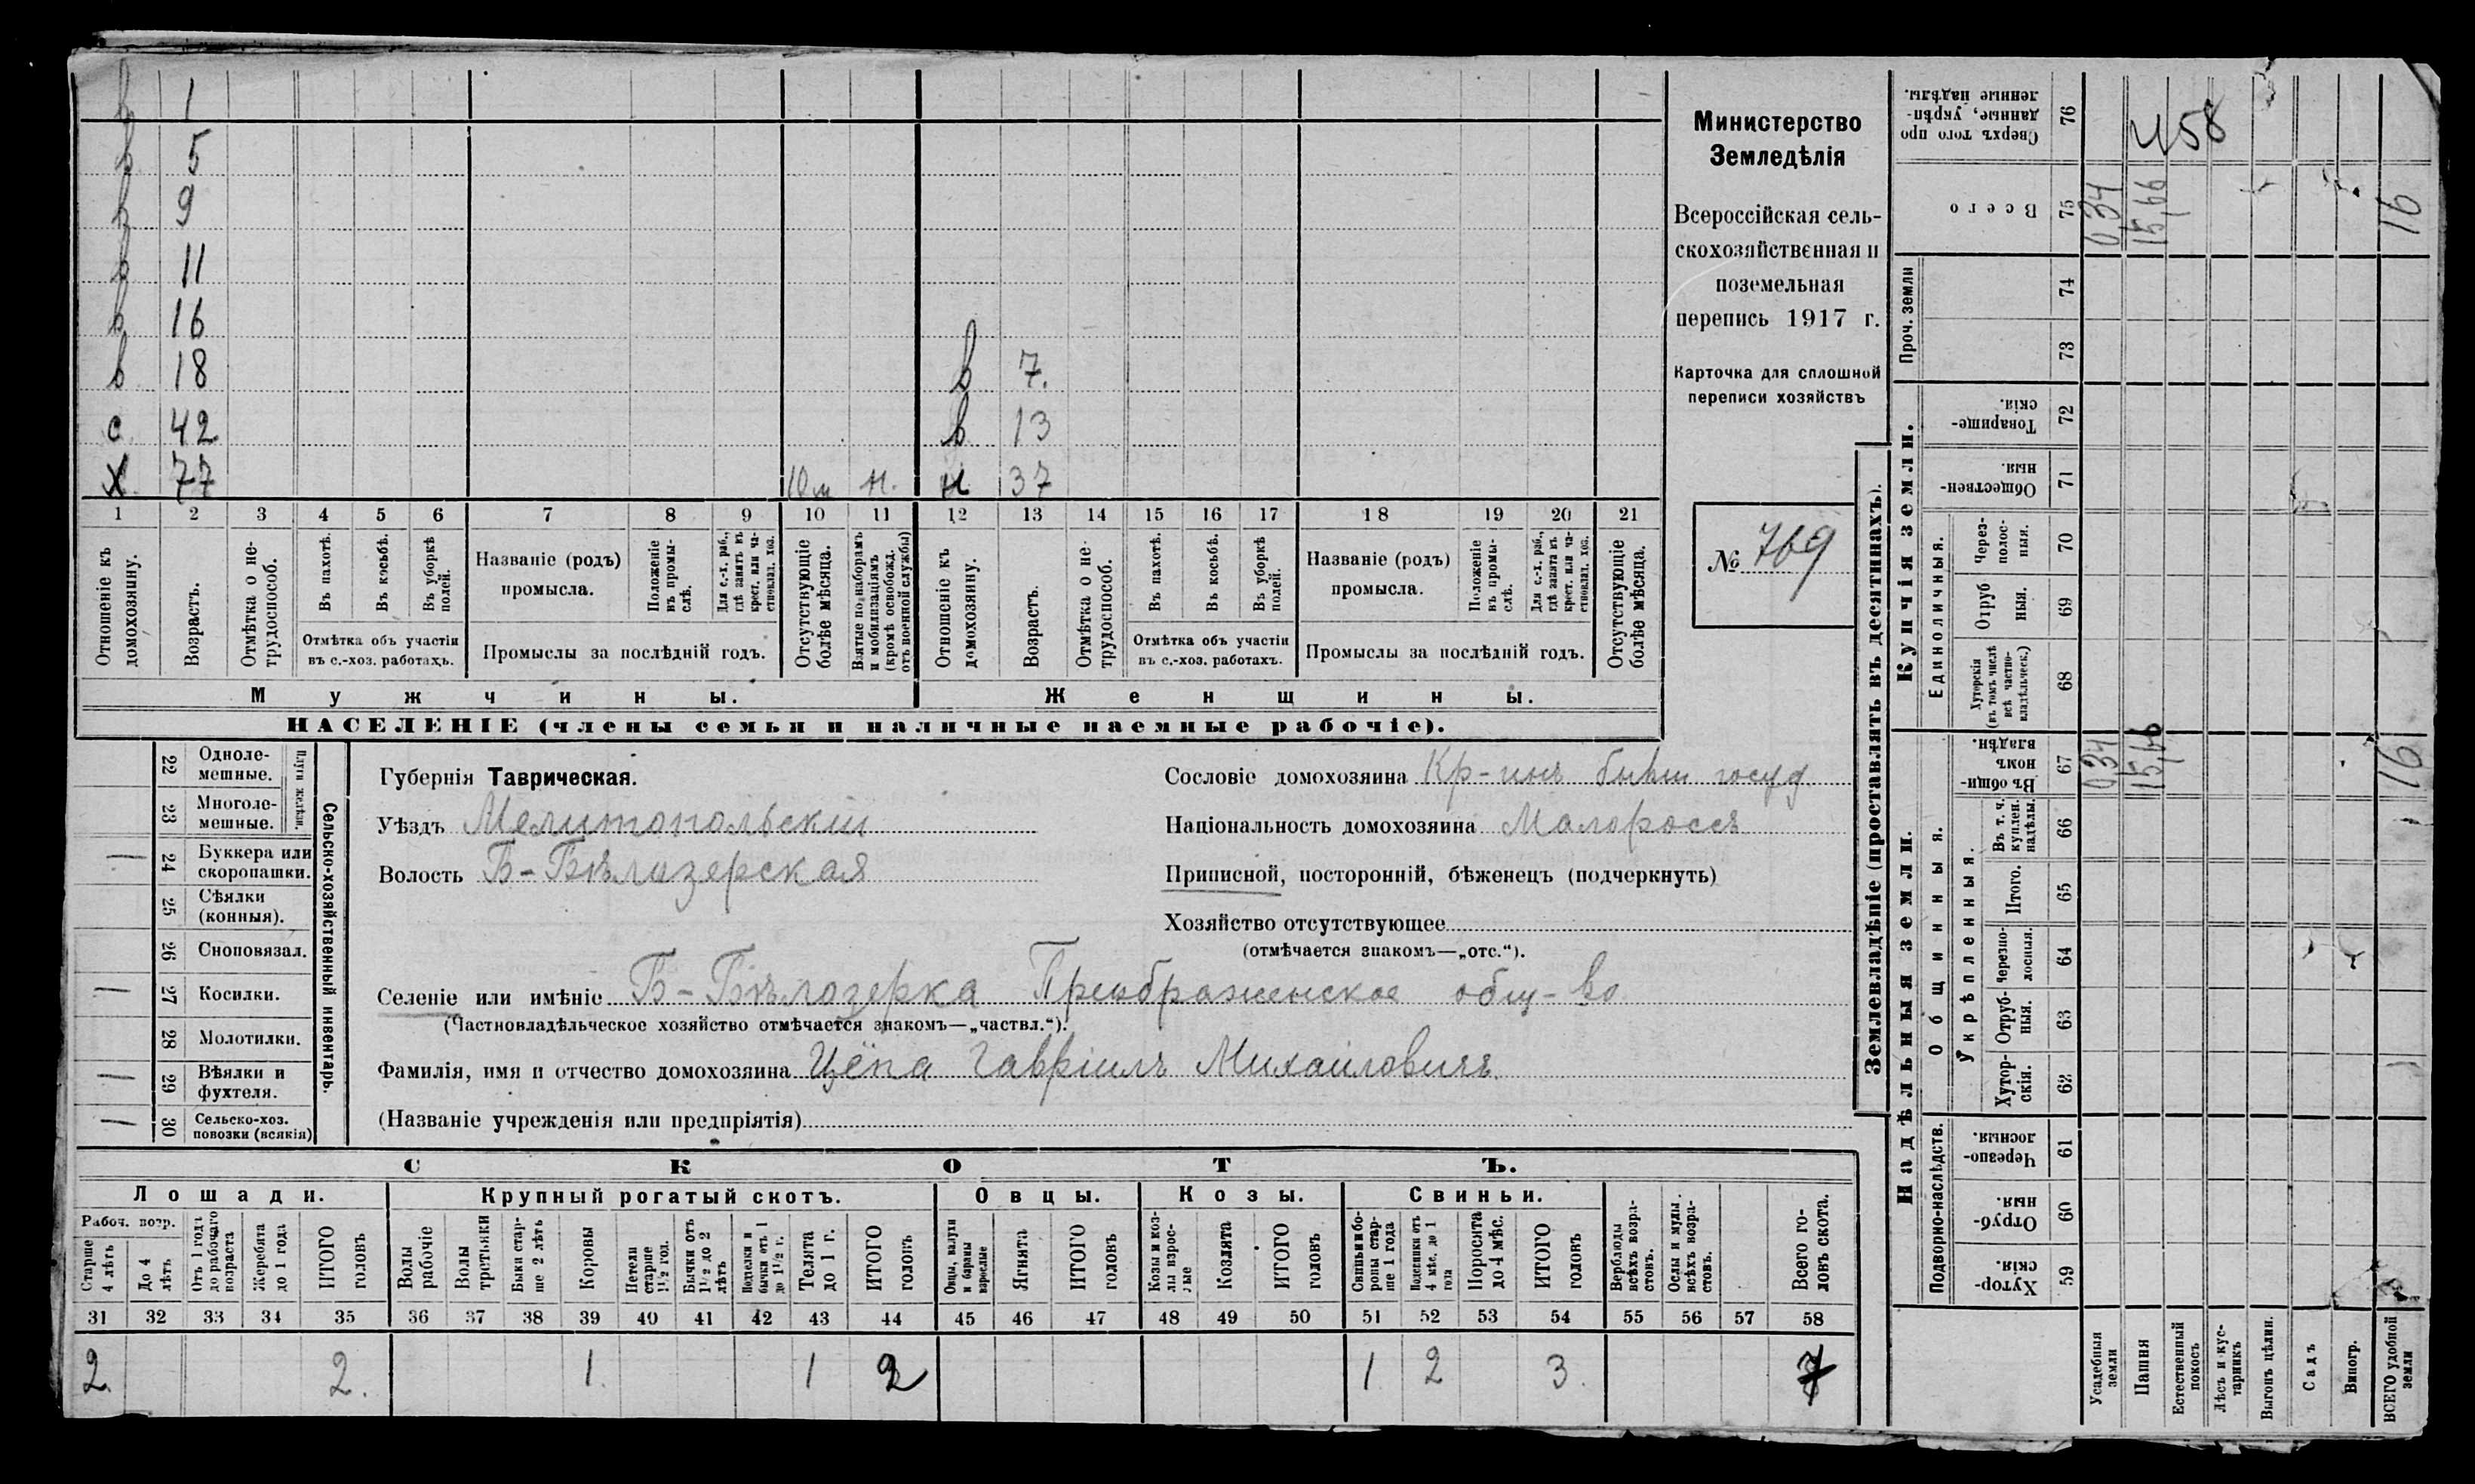 в 1
в 5
в 9
в 11
в 16
в 18 в 7.
с 42 в 13
х 77 10 м н. н 37
1 2 3 4 5 6 7 8 9 10 11 12 13 14 15 16 17 18 19 20 21
Отношеніе къ домохозяину.
Возрастъ.
Отмѣтка о нетрудоспособ.
Въ пахотѣ.
Въ косьбѣ.
Въ уборкѣ полей.
Отмѣтка объ участіи въ с.-хоз. работахъ.
Названіе (родъ) промысла.
Положеніе въ промыслѣ.
Для с.-х. раб., гдѣ занятъ въ крест. или частновлад. хоз.
Промыслы за послѣдній годъ.
Отсутствующіе болѣе мѣсяца.
Взятые по наборамъ и мобилизаціямъ (кромѣ освобожд. отъ военной службы)
Отношеніе къ домохозяину.
Возрастъ.
Отмѣтка о нетрудоспособ.
Въ пахотѣ.
Въ косьбѣ.
Въ уборкѣ полей.
Отмѣтка объ участіи въ с.-хоз. работахъ.
Названіе (родъ) промысла.
Положеніе въ промыслѣ.
Для с.-х. раб., гдѣ занята въ крест. или частновлад. хоз.
Промыслы за послѣдній годъ.
Отсутствующіе болѣе мѣсяца.
Мужчины. Женщины.
НАСЕЛЕНІЕ (члены семьи и наличные наемные рабочіе).
Министерство
Земледѣлія
Всероссійская сель-
скохозяйственная и
поземельная
перепись 1917 г.
Карточка для сплошной
переписи хозяйствъ
№ 769
22 Одноле-
мешные.
23 Многоле-
мешные.
Плуги желѣзн.
| 24 Буккера или
скоропашки.
25 Сѣялки
(конныя).
26 Сноповязал.
| 27 Косилки.
28 Молотилки.
| 29 Вѣялки и
фухтеля.
| 30 Сельско-хоз.
повозки (всякія)
Сельско-хозяйственный инвентарь.
Губернія Таврическая.
Уѣздъ Мелитопольскій
Волость Б-Бѣлозерская
Сословіе домохозяина Кр-инъ бывш госуд.
Національность домохозяина Малороссъ
Приписной, посторонній, бѣженецъ (подчеркнуть)
Хозяйство отсутствующее
(отмѣчается знакомъ—„отс.“).
Селеніе или имѣніе Б-Бѣлозерка Преображенское общ-во
(Частновладѣльческое хозяйство отмѣчается знакомъ—„частвл.“).
Фамилія, имя и отчество домохозяина Цёпа Гавріилъ Михаиловичъ.
(Названіе учрежденія или предпріятія)
СКОТЪ.
Лошади. Крупный рогатый скотъ. Овцы. Козы. Свиньи.
Рабоч. возр.
Старше 4 лѣтъ
До 4 лѣтъ
Отъ 1 года до рабочаго возраста
Жеребята до 1 года
ИТОГО головъ
Волы рабочіе
Волы третьяки
Быки старше 2 лѣтъ
Коровы
Нетели старше 1½ год.
Бычки отъ 1½ до 2 лѣтъ
Подтелки и бычки отъ 1 до 1½ г.
Телята до 1 г.
ИТОГО головъ
Овцы, валухи и бараны взрослые
Ягнята
ИТОГО головъ
Козы и козлы взрослые
Козлята
ИТОГО головъ
Свиньи боровы старше 1 года
Подсвинки отъ 4 мѣс. до 1 года
Поросята до 4 мѣс.
ИТОГО головъ
Верблюды всѣхъ возрастовъ.
Ослы и мулы всѣхъ возрастовъ.
Всего головъ скота.
31 32 33 34 35 36 37 38 39 40 41 42 43 44 45 46 47 48 49 50 51 52 53 54 55 56 57 58
2. 2. 1. 1 2 1 2 3. 7
Землевладѣніе (проставлять въ десятинахъ).
Надѣльныя земли. Купчія земли. Проч. земли
Подворно-наслѣдств. Общинныя. Укрѣпленныя. Единоличныя.
Хуторскія. 59
Отрубныя. 60
Черезполосныя. 61
Хуторскія. 62
Отрубныя. 63
Черезполосныя. 64
Итого. 65
Въ т. ч. куплен. надѣлы. 66
Въ общинномъ владѣн. 67
Хуторскія (въ томъ числѣ всѣ частновладѣльческ.) 68
Отрубныя. 69
Черезполосныя. 70
Общественныя. 71
Товарищескія. 72
73
74
Всего 75
Сверхъ того проданные, укрѣпленные надѣлы. 76
Усадебныя земли 0,34 0,34
Пашня 15,66 15,66
Естественный покосъ
Лѣсъ и кустарникъ
Выгонъ цѣлин.
Садъ
Виногр.
ВСЕГО удобной земли 16 16